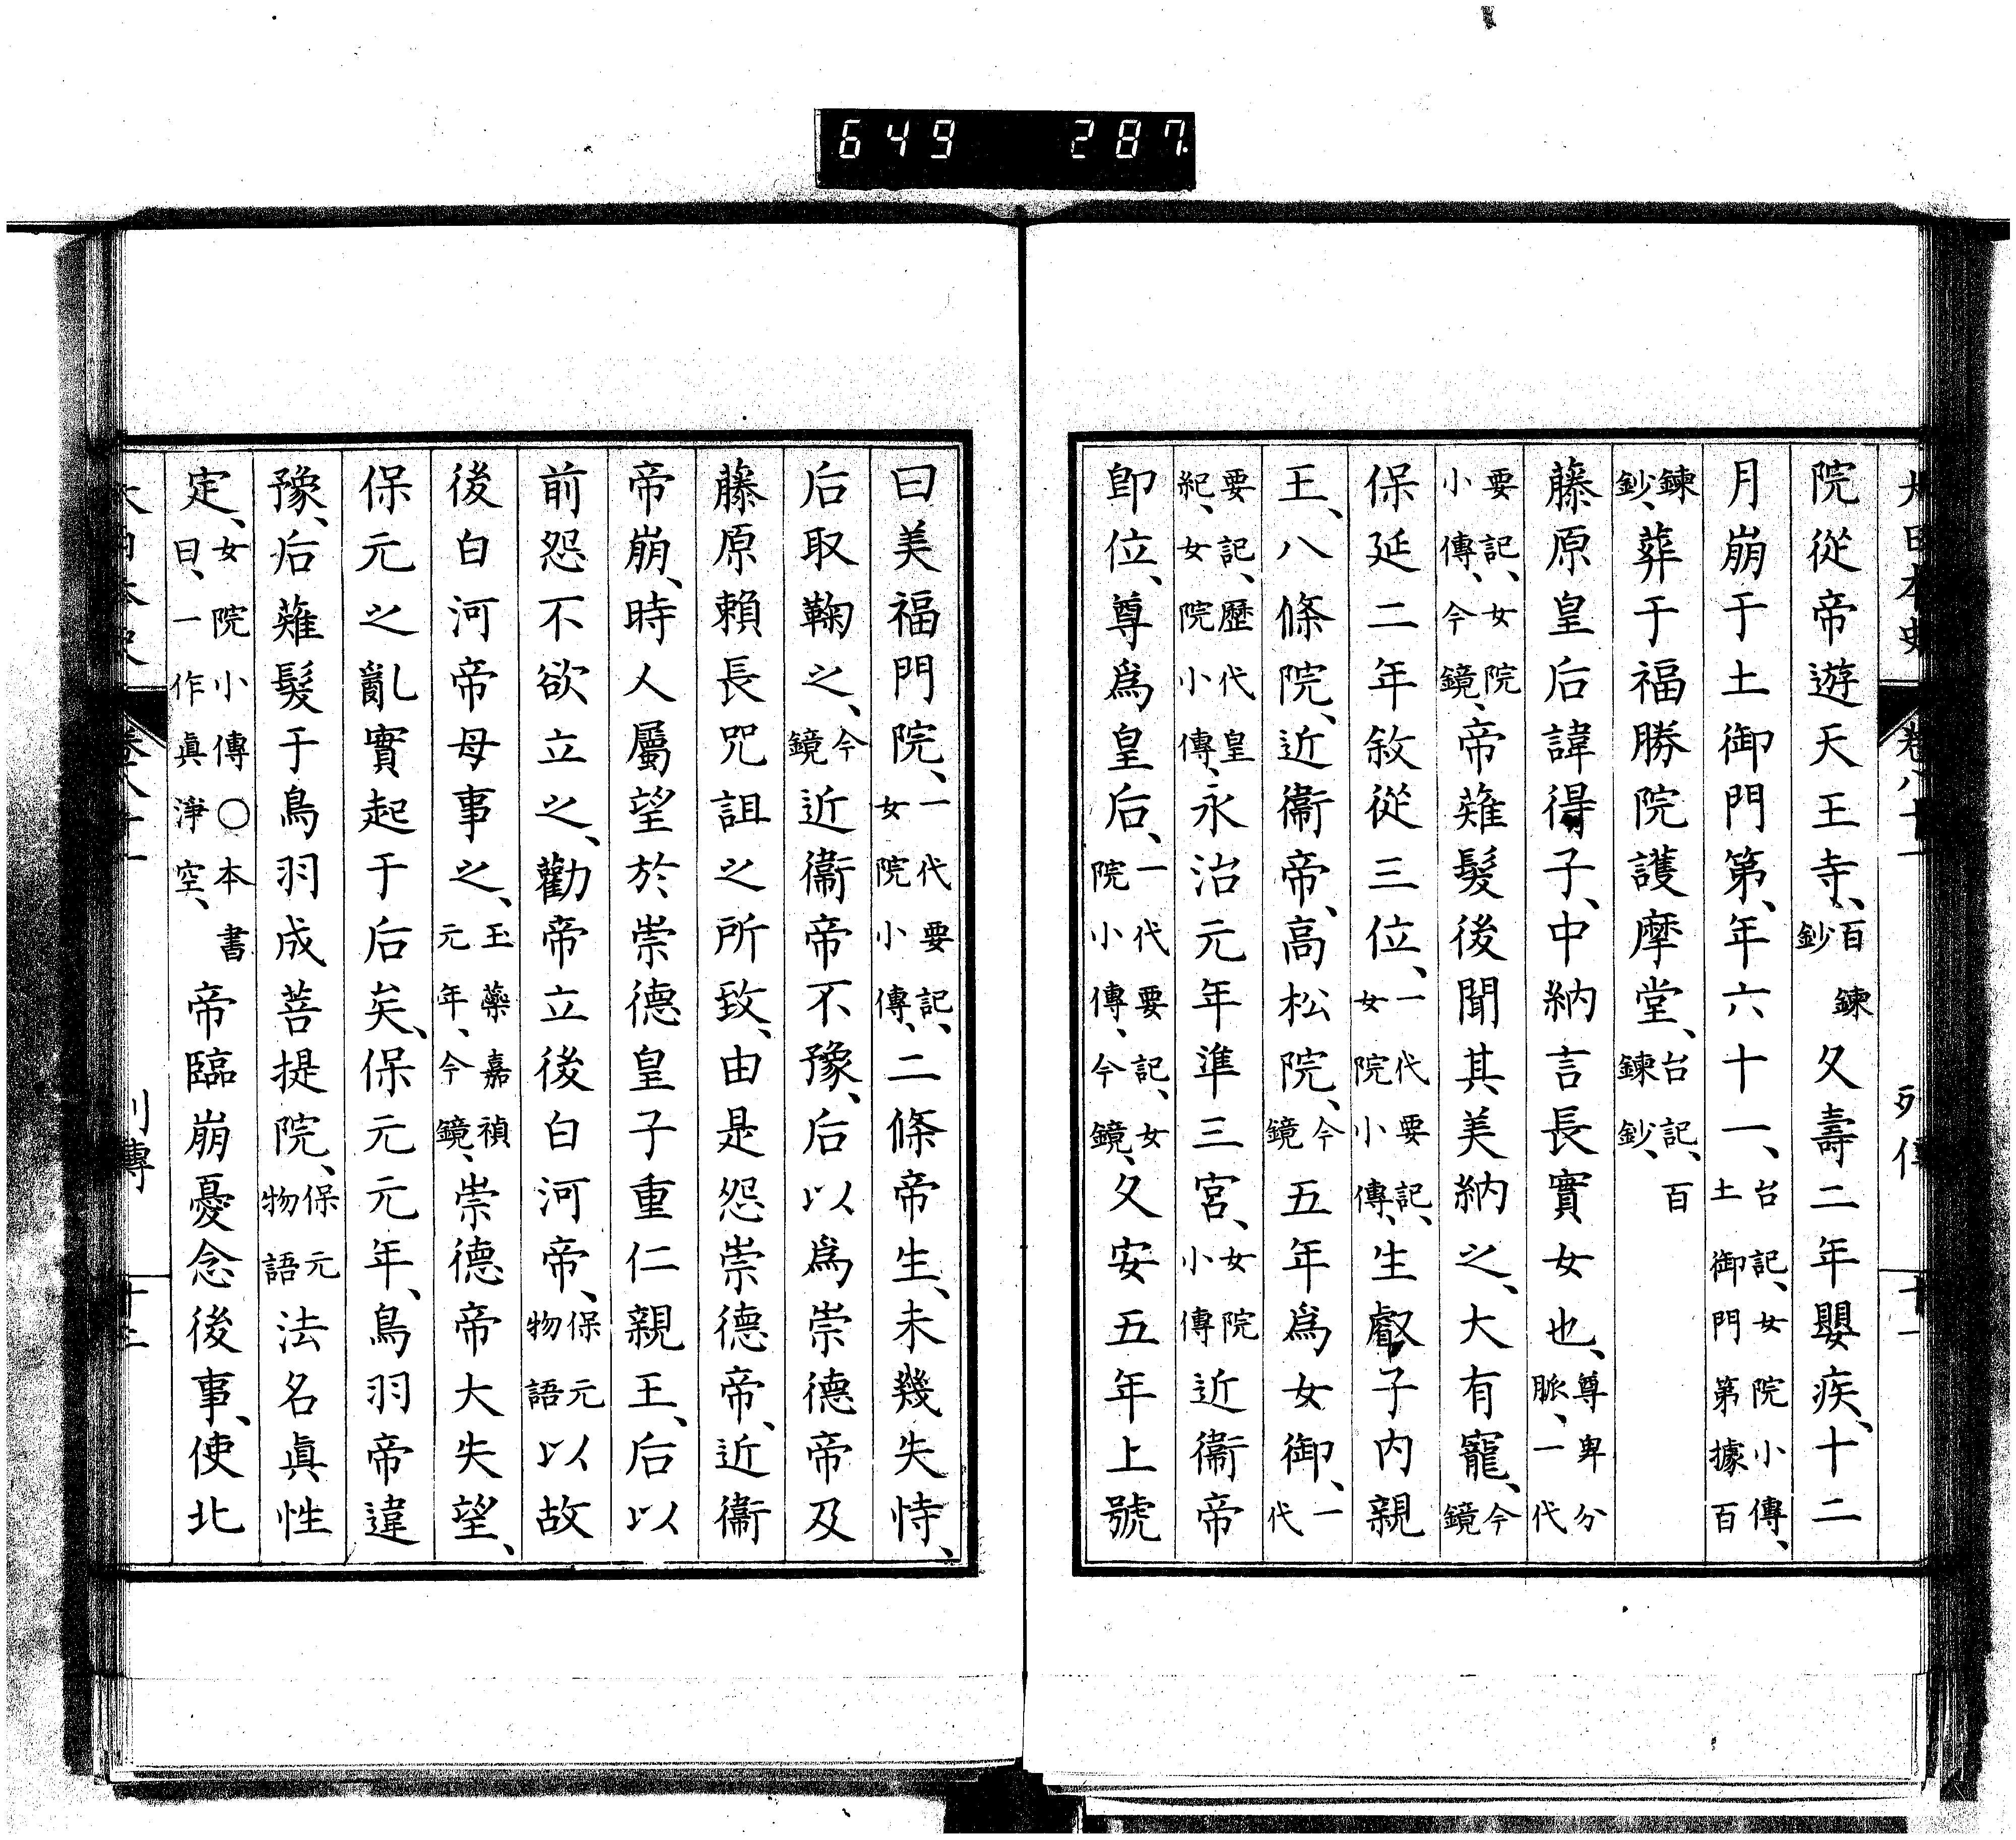 649 287
大日本史 卷八十一 列傳 十一
院從帝遊天王寺、百鍊鈔久壽二年嬰疾、十二
月崩于土御門第、年六十一、台記、女院小傳、土御門第據百
鍊鈔、葬于福勝院護摩堂、台記、百鍊鈔、
藤原皇后諱得子、中納言長實女也、尊卑分脈、一代
要記、女院小傳、今鏡、帝薙髮後聞其美納之、大有寵、今鏡
保延二年敘從三位、一代要記、女院小傳、生叡子內親
王、八條院、近衞帝、高松院、今鏡五年爲女御、一代
要記、歷代皇紀、女院小傳、永治元年準三宮、女院小傳近衞帝
卽位、尊爲皇后、一代要記、女院小傳、今鏡、久安五年上號
曰美福門院、一代要記、女院小傳、二條帝生、未幾失恃、
后取鞠之、今鏡近衞帝不豫、后以爲崇德帝及
藤原賴長咒詛之所致、由是怨崇德帝、近衞
帝崩、時人屬望於崇德皇子重仁親王、后以
前怨不欲立之、勸帝立後白河帝、保元物語以故
後白河帝母事之、玉蘂嘉禎元年、今鏡、崇德帝大失望、
保元之亂實起于后矣、保元元年、鳥羽帝違
豫、后薙髮于鳥羽成菩提院、保元物語法名眞性
定、女院小傳○本書曰、一作眞淨空、帝臨崩憂念後事、使北
大日本史 卷八十一 列傳